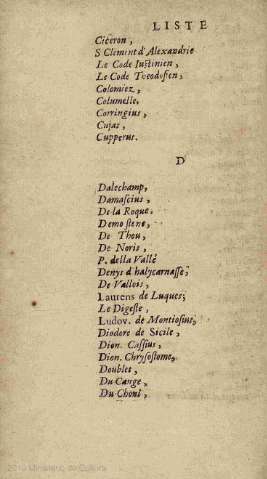 LISTE
Ciceron,
S Clement d'Alexandrie
Le Code Iustinien,
Le Code Teodosien,
Colomiez,
Columelle,
Corringius,
Cujas,
Cupperus.
D
Dalechamp,
Damascius,
De la Roque,
Demostene,
De Thou,
De Noris,
P. della Vallé
Denys d'halycarnasse;
De Vallois,
Laurens de Luques;
Le Digeste,
Ludov. de Montiosius,
Diodore de Sicile,
Dion. Cassius,
Dion. Chrysostome,
Doublet,
Du Cange,
Du Choul,
2010 Ministerio de Cultura